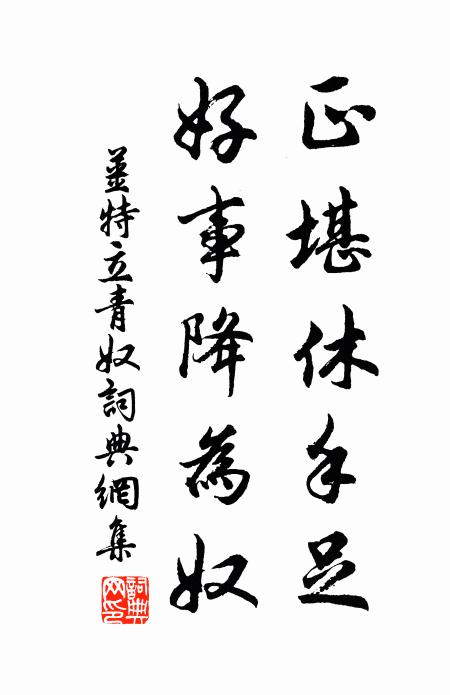 正堪休手足
好事降為奴
薑特立青奴詞典網集
詞典网印